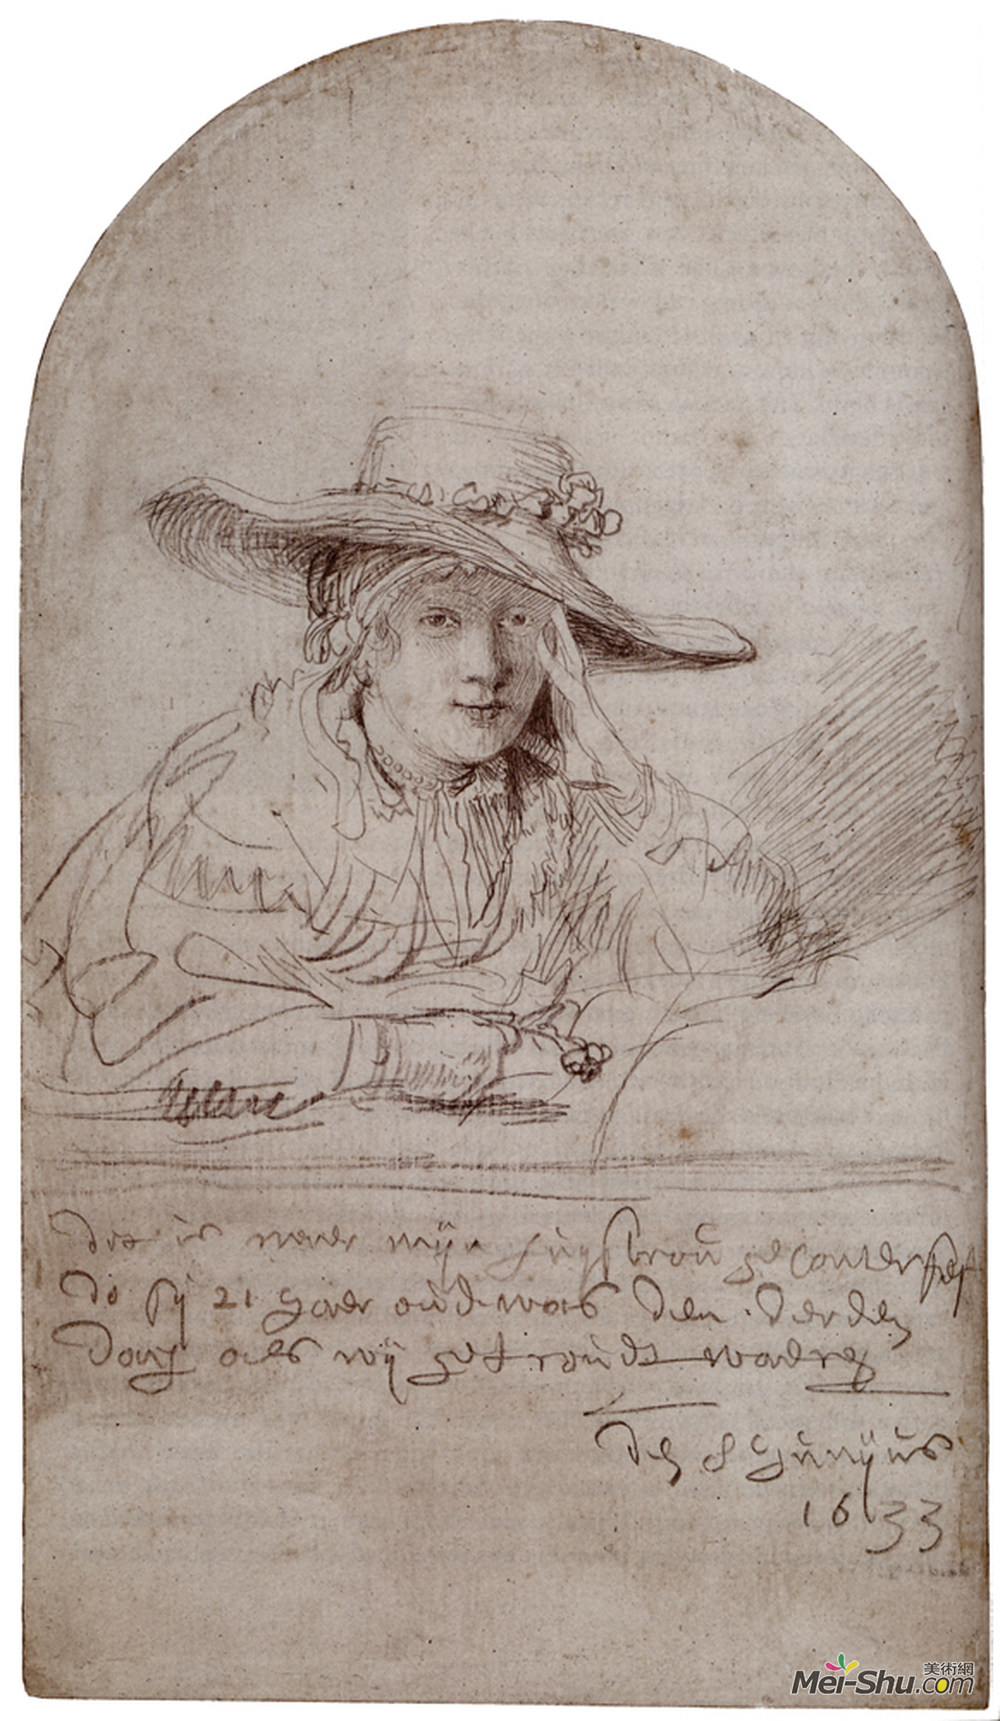 dit is naer mijn huijsvrou geconterfeÿt
do sij 21 jaer oud was den derden
dach als wij getroudt waeren
den 8 junijus
1633
美術網
Mei-Shu.com